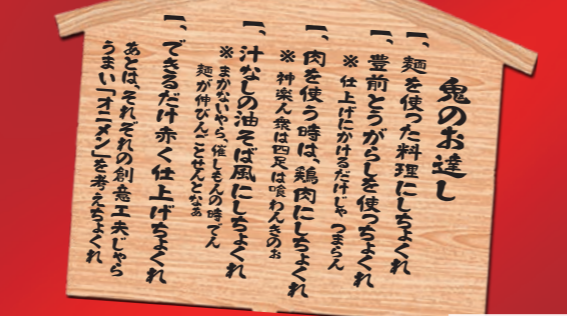 鬼のお達し
一、麺を使った料理にしちょくれ
一、豊前とうがらしを使っちょくれ
※仕上げにかけるだけじゃつまらん
一、肉を使う時は、鶏肉にしちょくれ
※神楽ん衆は四足は喰わんきのぉ
一、汁なしの油そば風にしちょくれ
※まかないやら、催しもんの時でん
麺が伸びんごとせんとなぁ
一、できるだけ赤く仕上げちょくれ
あとは、それぞれの創意工夫じゃら
うまい「オニメン」を考えちょくれ